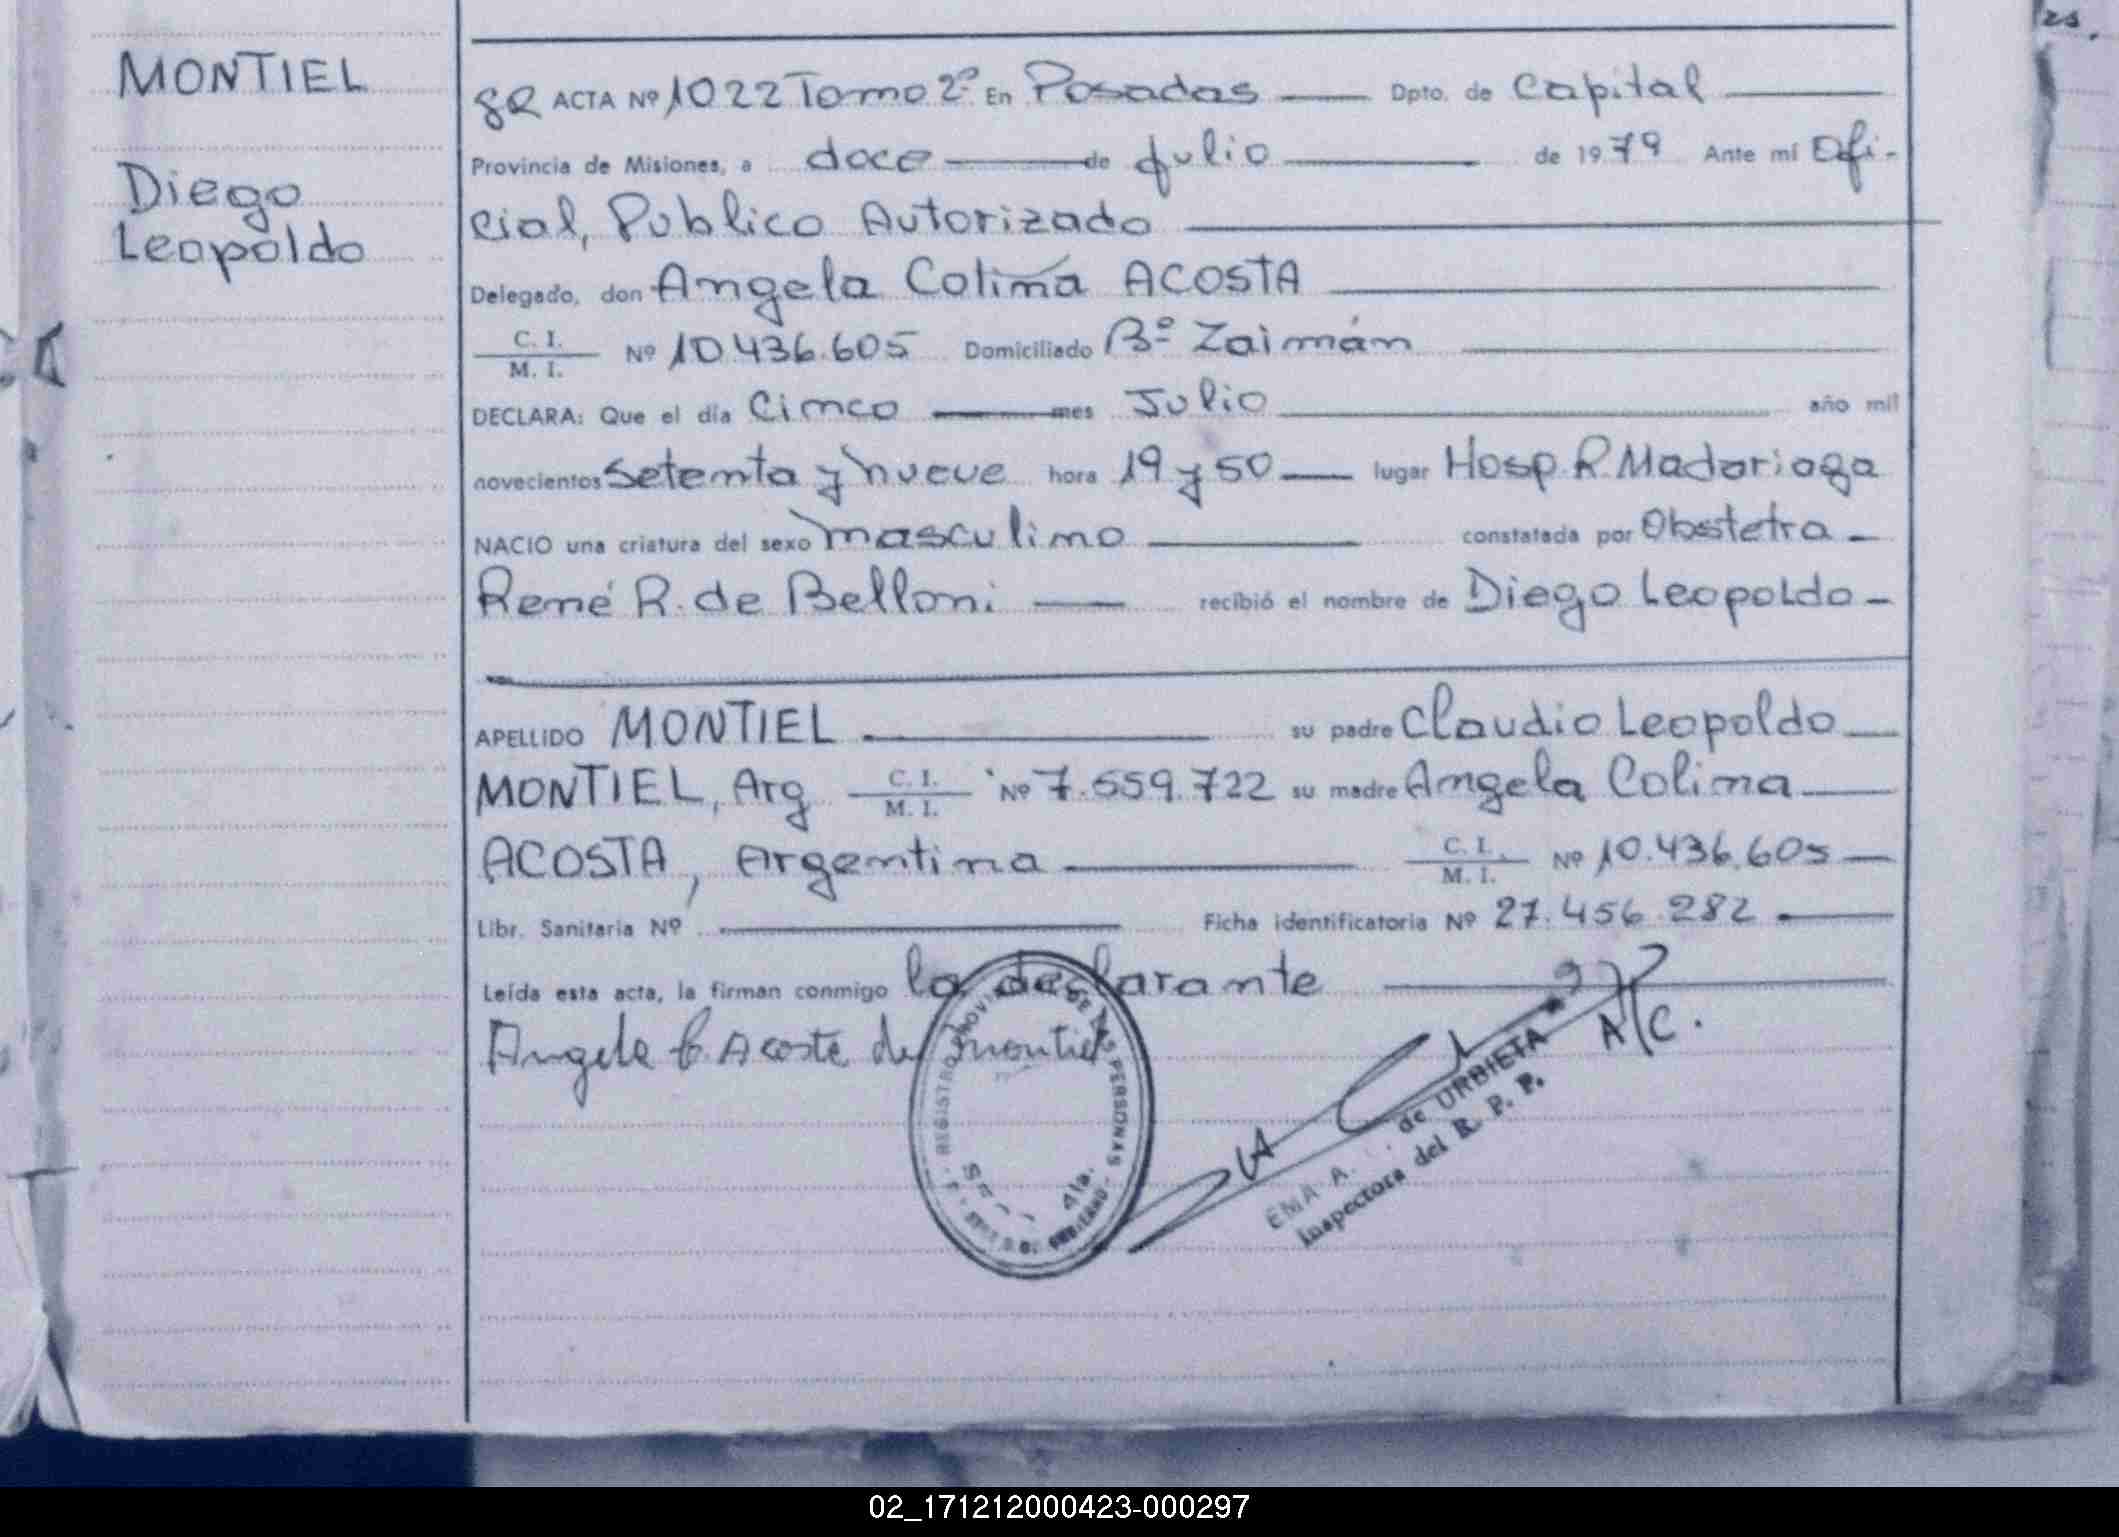 MONTIEL
Diego
Leopoldo
ACTA Nº 1022 Tomo 2º En Posadas Dpto. de Capital
Provincia de Misiones, a doce de julio de 1979 Ante mí Ofi-
cial, Publico Autorizado
Delegado, don Angela Colima ACOSTA
C. I.
M. I. Nº 10.436.605 Domiciliado Bº Zaimán
DECLARA: Que el día Cinco mes Julio año mil
novecientos setenta y nueve hora 19 y 50 lugar Hosp. R. Madariaga
NACIO una criatura del sexo masculino constatada por Obstetra
René R. de Belloni recibió el nombre de Diego Leopoldo
APELLIDO MONTIEL su padre Claudio Leopoldo
MONTIEL, Arg C. I. M. I. Nº 7.559.722 su madre Angela Colima
ACOSTA, Argentina C. I. M. I. Nº 10.436.605
Libr. Sanitaria Nº Ficha identificatoria Nº 27.456.282
Leída esta acta, la firman conmigo la declarante
Angela C. Acosta de Montiel
A/C.
REGISTRO PROVINCIAL DE LAS PERSONAS
EMA A. de URBIETA
Inspectora del R. P. P.
02_171212000423-000297